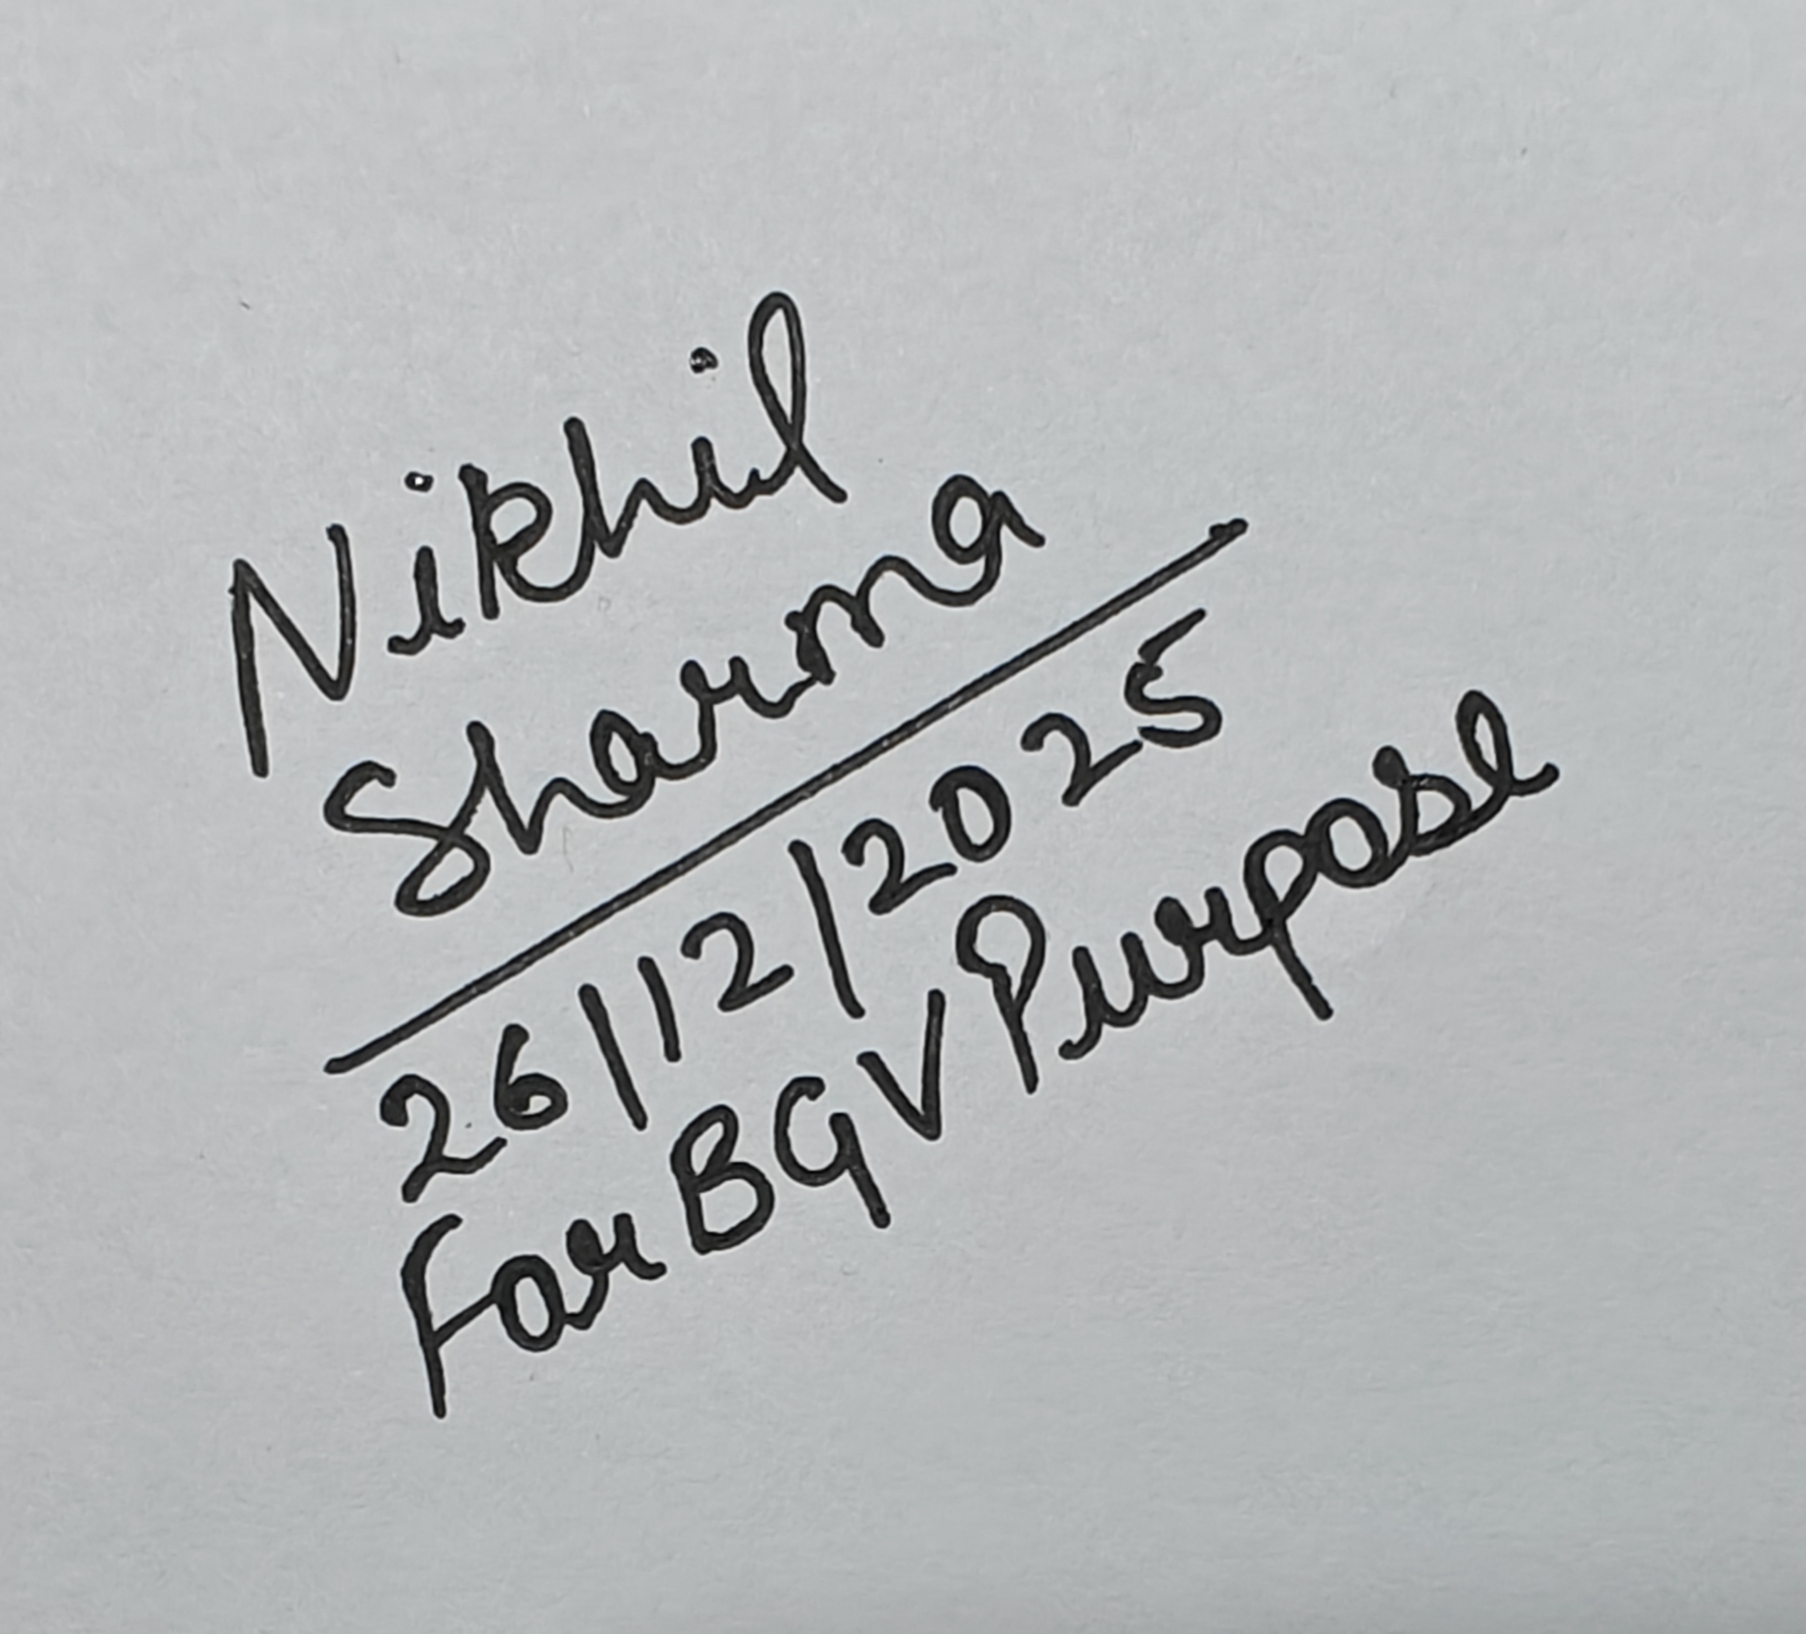 Nikhil
Sharma
26/12/2025
For BGV Purpose